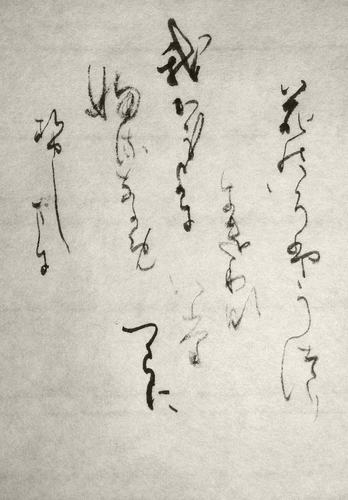 花のいろはうつり
にけりな
いた
つらに
我かみよに
ふるなかめ
せし
まに